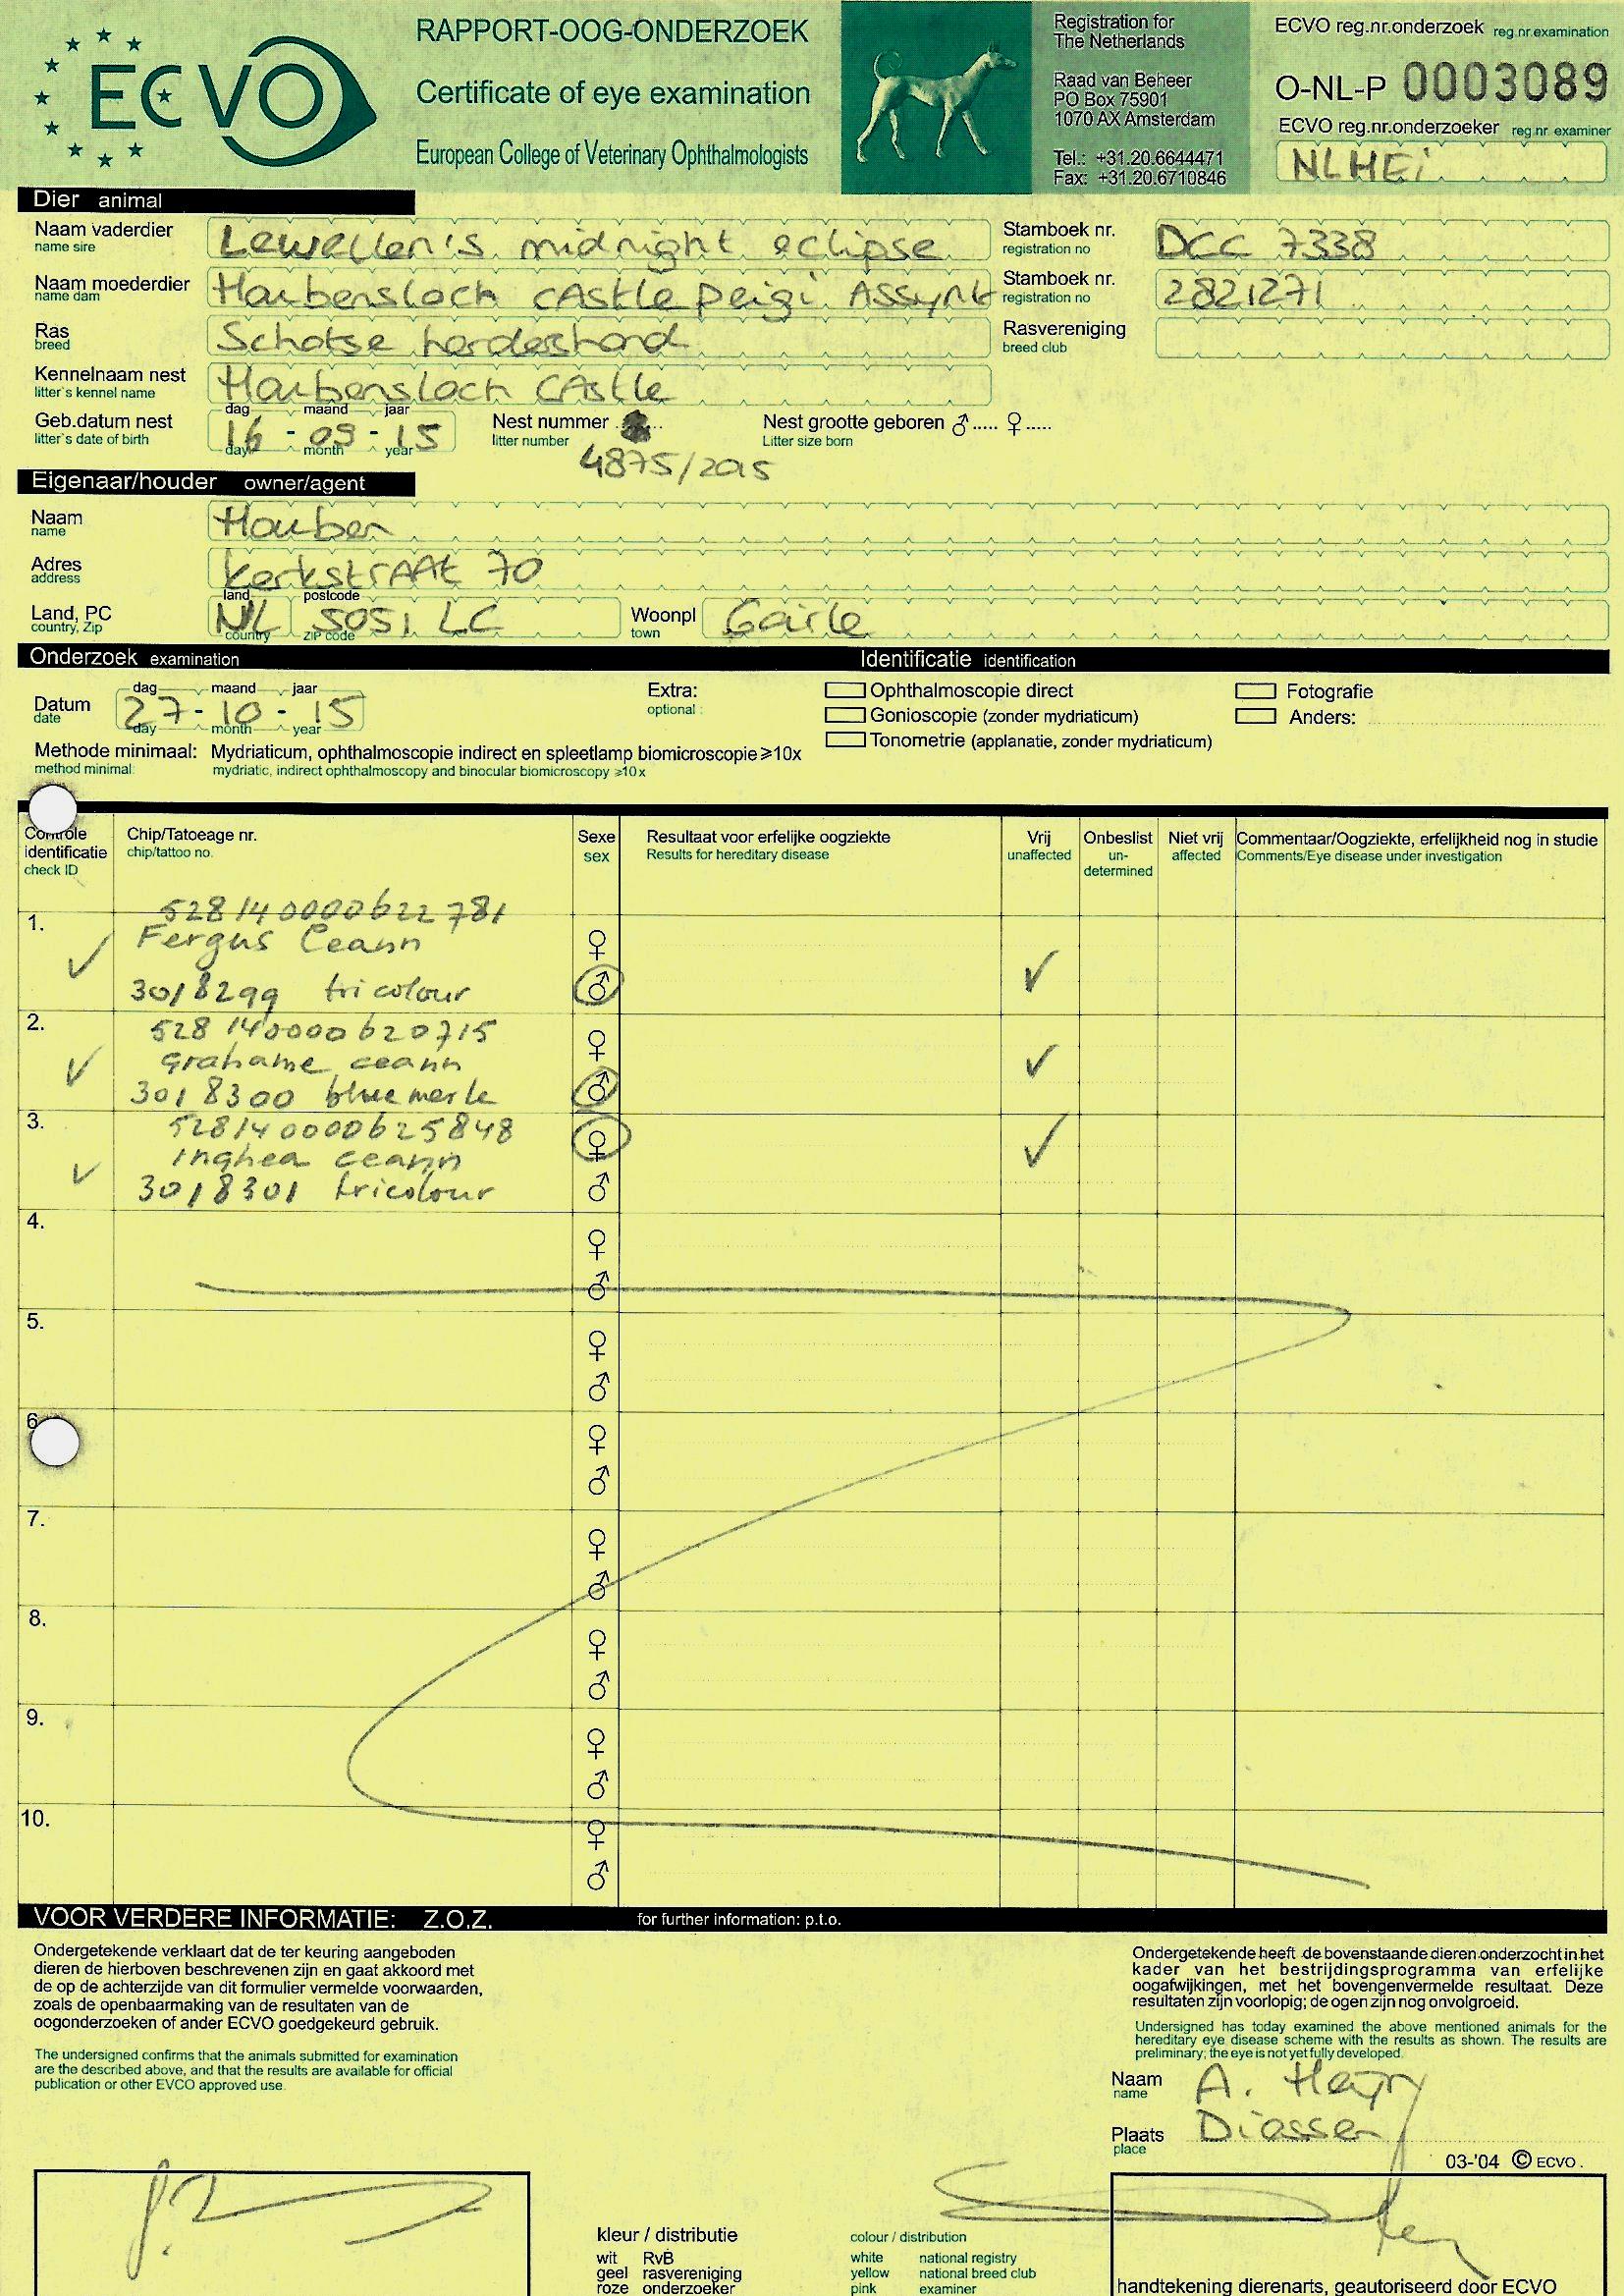 ECVO
RAPPORT-OOG-ONDERZOEK
Certificate of eye examination
European College of Veterinary Ophthalmologists
Registration for
The Netherlands
Raad van Beheer
PO Box 75901
1070 AX Amsterdam
Tel.: +31.20.6644471
Fax: +31.20.6710846
ECVO reg.nr.onderzoek reg.nr.examination
O-NL-P 0003089
ECVO reg.nr.onderzoeker reg.nr examiner
NLHEi
Dier animal
Naam vaderdier
name sire
Lewellen's midnight eclipse
Stamboek nr.
registration no
DCC 7338
Naam moederdier
name dam
Haubensloch CAstle peigi Assynt
Stamboek nr.
registration no
2821271
Ras
breed
Schotse herdershond
Rasvereniging
breed club
Kennelnaam nest
litter's kennel name
Haubensloch CAstle
Geb.datum nest
litter's date of birth
dag maand jaar
16 - 09 - 15
day month year
Nest nummer
litter number
4875/2015
Nest grootte geboren ♂..... ♀.....
Litter size born
Eigenaar/houder owner/agent
Naam
name
Hauben
Adres
address
kerkstrAAt 70
Land, PC
country, Zip
land postcode
NL 5051 LC
country ZIP code
Woonpl
town
Goirle
Onderzoek examination
Identificatie identification
Datum
date
dag maand jaar
27 - 10 - 15
day month year
Extra:
optional :
Ophthalmoscopie direct
Gonioscopie (zonder mydriaticum)
Tonometrie (applanatie, zonder mydriaticum)
Fotografie
Anders:
Methode minimaal: Mydriaticum, ophthalmoscopie indirect en spleetlamp biomicroscopie ≥10x
method minimal: mydriatic, indirect ophthalmoscopy and binocular biomicroscopy ≥10x
Controle
identificatie
check ID
Chip/Tatoeage nr.
chip/tattoo no.
Sexe
sex
Resultaat voor erfelijke oogziekte
Results for hereditary disease
Vrij
unaffected
Onbeslist
un-
determined
Niet vrij
affected
Commentaar/Oogziekte, erfelijkheid nog in studie
Comments/Eye disease under investigation
1.
528140000622781
Fergus Ceann
3018299 tricolour
♀
♂
2.
528140000620715
grahame ceann
3018300 blue merle
♀
♂
3.
528140000625848
Inghea ceann
3018301 tricolour
♀
♂
4.
♀
♂
5.
♀
♂
6
♀
♂
7.
♀
♂
8.
♀
♂
9.
♀
♂
10.
♀
♂
VOOR VERDERE INFORMATIE: Z.O.Z. for further information: p.t.o.
Ondergetekende verklaart dat de ter keuring aangeboden
dieren de hierboven beschrevenen zijn en gaat akkoord met
de op de achterzijde van dit formulier vermelde voorwaarden,
zoals de openbaarmaking van de resultaten van de
oogonderzoeken of ander ECVO goedgekeurd gebruik.
The undersigned confirms that the animals submitted for examination
are the described above, and that the results are available for official
publication or other EVCO approved use.
Ondergetekende heeft de bovenstaande dieren onderzocht in het
kader van het bestrijdingsprogramma van erfelijke
oogafwijkingen, met het bovengenvermelde resultaat. Deze
resultaten zijn voorlopig; de ogen zijn nog onvolgroeid.
Undersigned has today examined the above mentioned animals for the
hereditary eye disease scheme with the results as shown. The results are
preliminary; the eye is not yet fully developed.
Naam
name
A.
Plaats
place
Diessen
03-'04 © ECVO.
kleur / distributie
wit RvB
geel rasvereniging
roze onderzoeker
colour / distribution
white national registry
yellow national breed club
pink examiner
handtekening dierenarts, geautoriseerd door ECVO